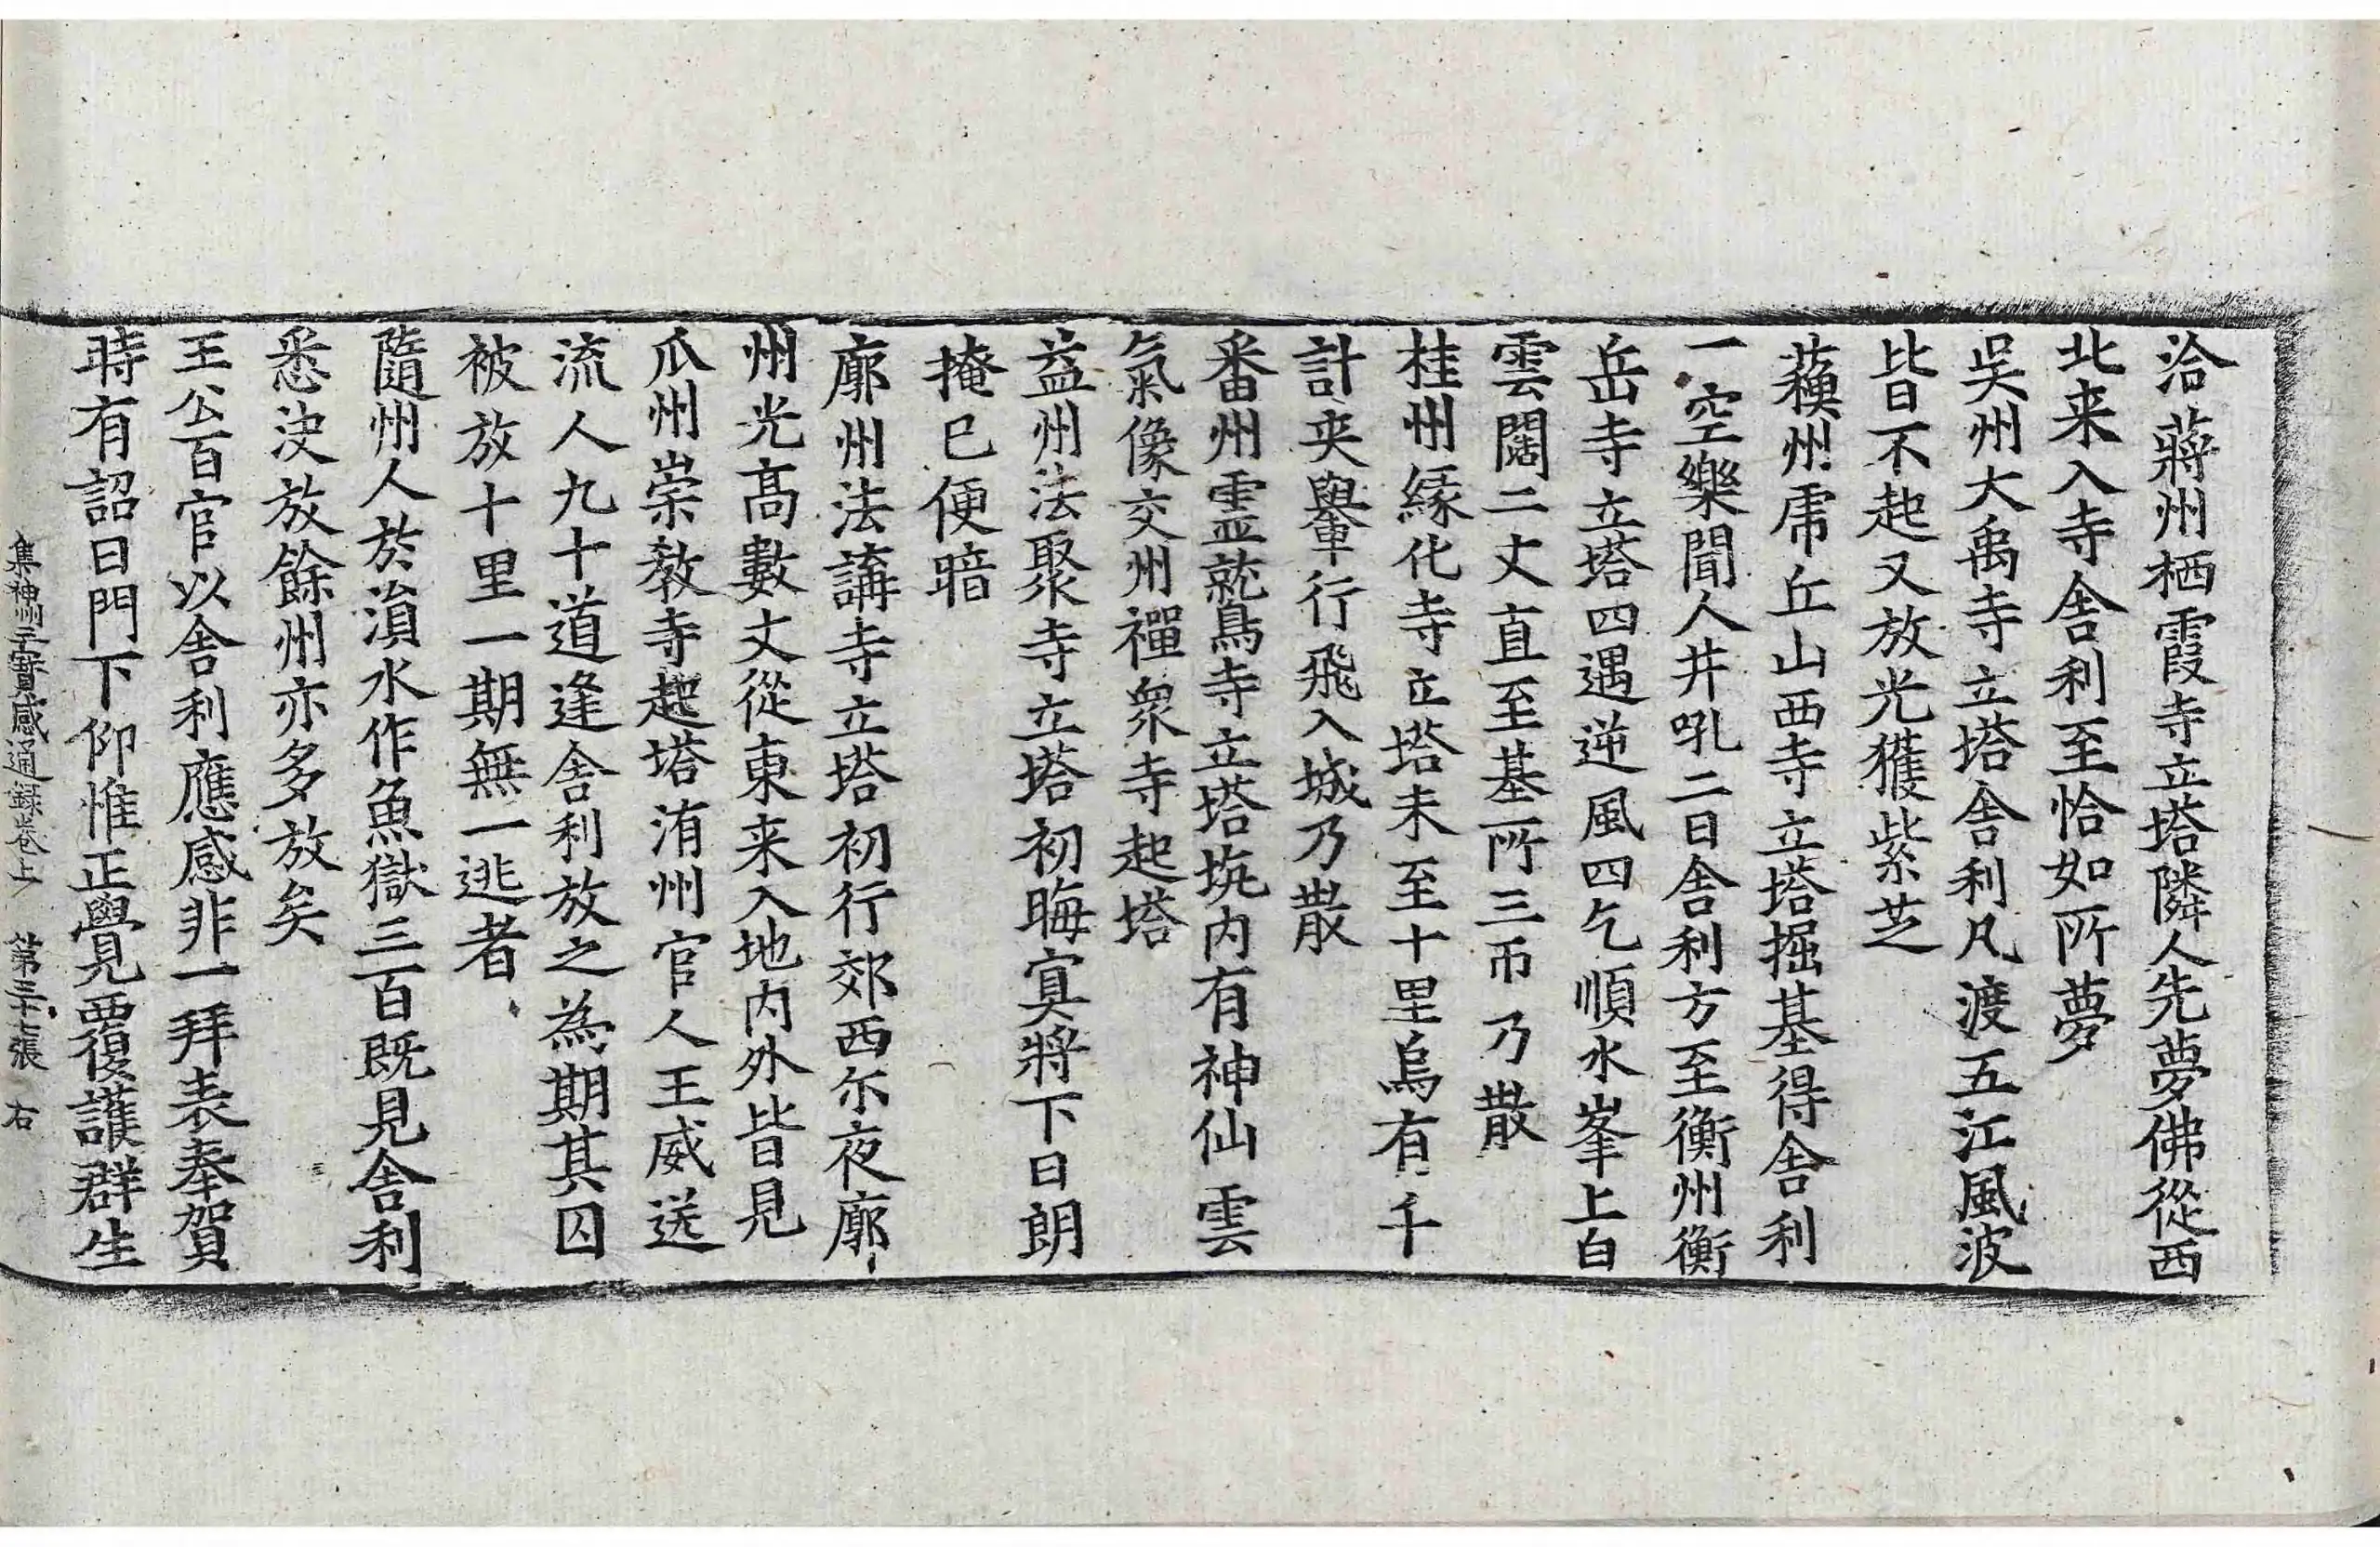 洽蔣州栖霞寺立塔隣人先夢佛從西
北来入寺舍利至恰如所夢
吳州大禹寺立塔舍利凡渡五江風波
皆不起又放光獲紫芝
蘓州虎丘山西寺立塔掘基得舍利
一空樂聞人井吼二日舍利方至衡州衡
岳寺立塔四遇逆風四乞順水峯上白
雲闊二丈直至基所三帀乃散
桂州緣化寺立塔未至十里烏有千
計夾轝行飛入城乃散
番州靈鷲寺立塔坑内有神仙雲
氣像交州禪衆寺起塔
益州法聚寺立塔初晦寞將下日朗
掩已便暗
廓州法講寺立塔初行郊西尓夜廓
州光髙數丈從東来入地内外皆見
瓜州崇教寺起塔洧州官人王威送
流人九十道逢舍利放之為期其囚
被放十里一期無一逃者
隨州人於溳水作魚獄三百既見舍利
悉決放餘州亦多放矣
王公百官以舍利應感非一拜表奉賀
時有詔曰門下仰惟正覺覆護群生
集神州三寳感通録卷上 第三十七張 右